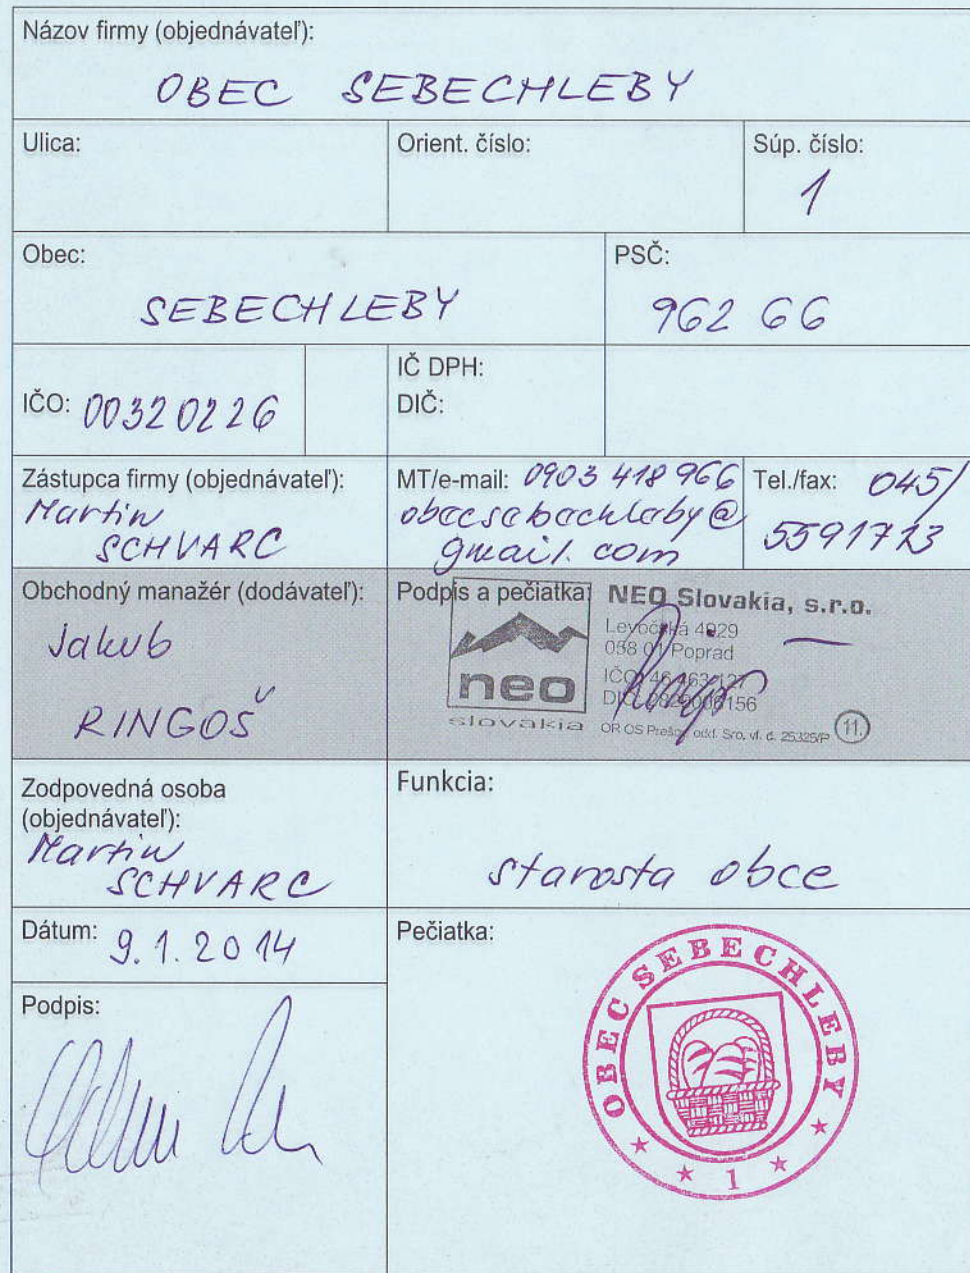 Názov firmy (objednávateľ):
OBEC SEBECHLEBY
Ulica:
Orient. číslo:
Súp. číslo:
1
Obec:
SEBECHLEBY
PSČ:
962 66
IČO: 00320226
IČ DPH:
DIČ:
Zástupca firmy (objednávateľ):
Martin
SCHVARC
MT/e-mail: 0903 418 966
obecsebechleby@
gmail.com
Tel./fax: 045/
Obchodný manažér (dodávateľ):
Jakub
RINGOŠ
Podpis a pečiatka:
neo
slovakia
NEO Slovakia, s.r.o.
Levočská 4929
058 01 Poprad
IČO: 46 463 127
OR OS Prešov, odd. Sro, vl. č. 25325/P
11.
Zodpovedná osoba
(objednávateľ):
Martin
SCHVARC
Funkcia:
starosta obce
Dátum: 9.1.2014
Podpis:
Pečiatka:
OBEC SEBECHLEBY
1